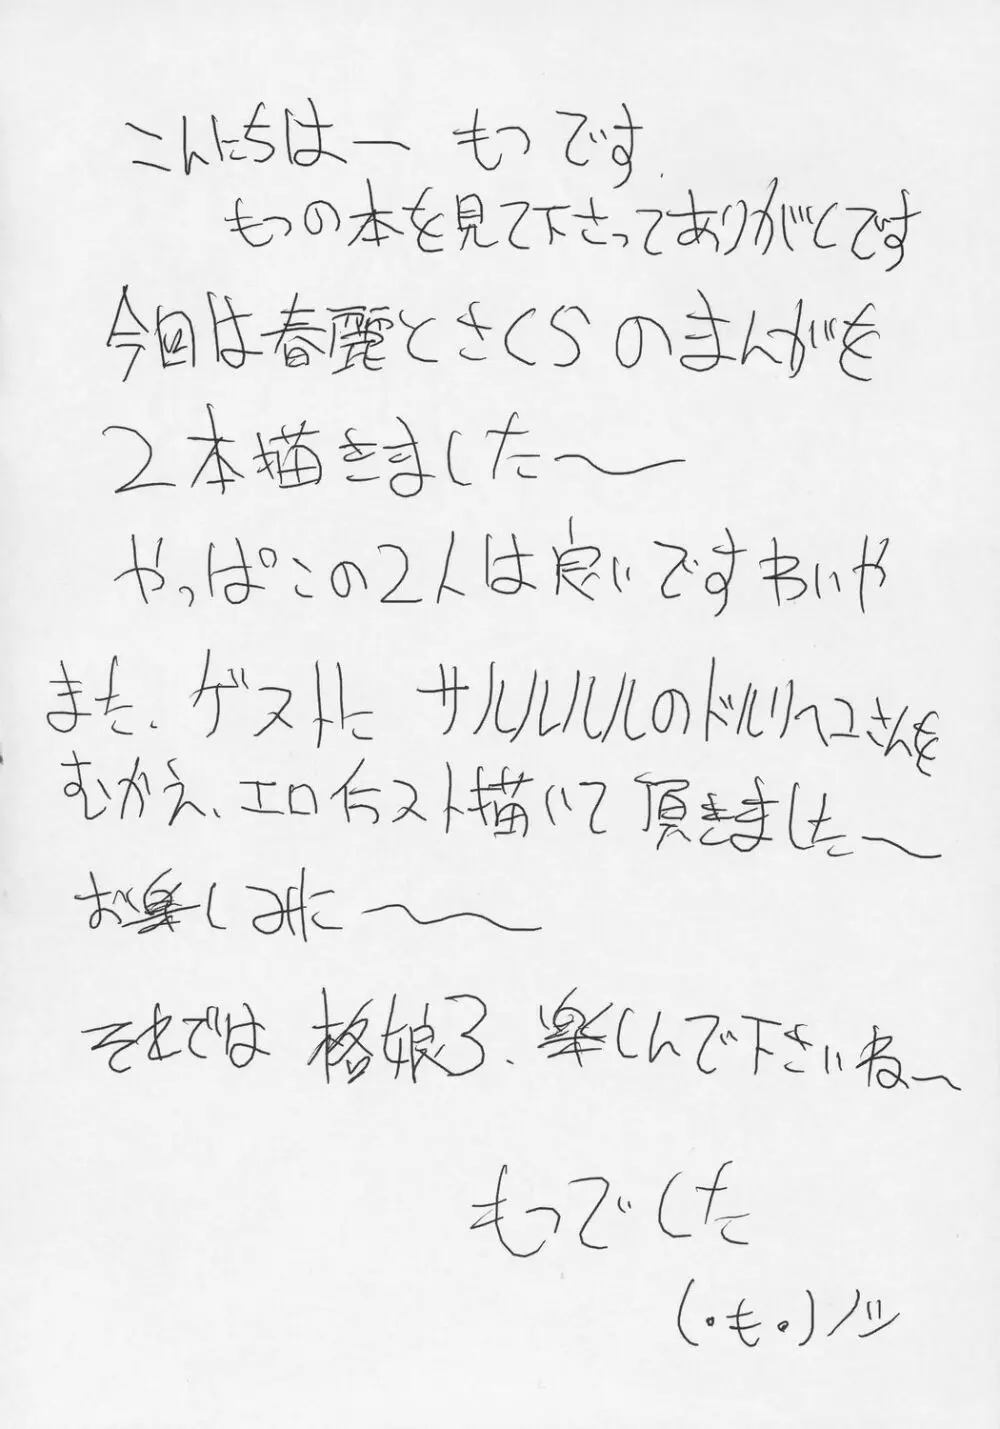 こんにちはー もつ です
もつの本を見て下さってありがとです
今回は春麗とさくらのまんがを
2本描きました〜
やっぱこの2人は良いですわいや
また、ゲストに サルルルルのドルリヘユさんを
むかえ、エロイラスト描いて頂きました〜
お楽しみに〜〜
それでは 格娘3、楽しんで下さいね〜
もつでした
(・も・)ノシ